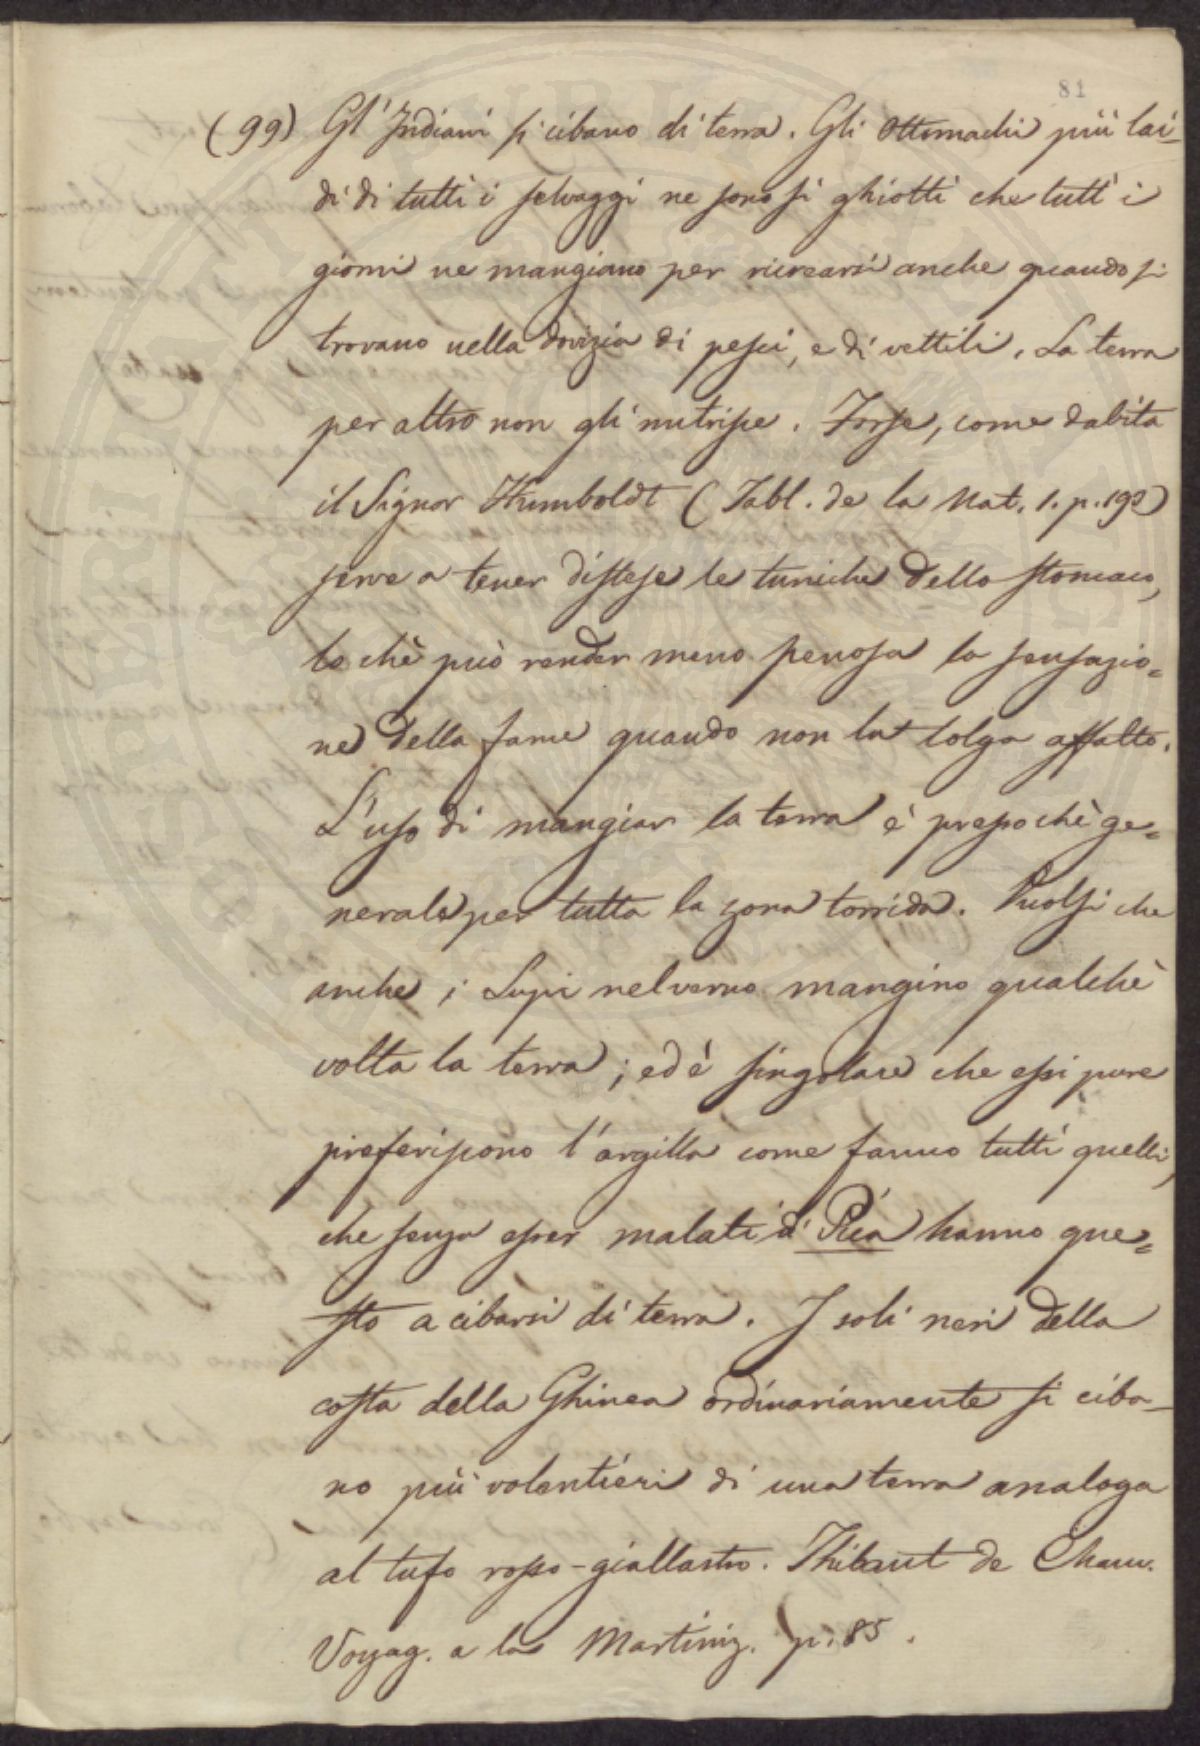 81
(99) Gl'Indiani si cibano di terra. Gli Ottomachi più lai-
di di tutti i selvaggi ne sono sì ghiotti che tutt'i
giorni ne mangiano per ricrearsi anche quando si
trovano nella dovizia di pesci, e di rettili. La terra
per altro non gli nutrisce. Forse, come dubita
il Signor Humboldt (Tabl. de la Nat. 1. p. 192)
serve a tener distese le tuniche dello stomaco,
lo chè può render meno penosa la sensazio=
ne della fame quando non la tolga affatto.
L'uso di mangiar la terra è pressochè ge=
nerale per tutta la zona torrida. Vuolsi che
anche i Lupi nel verno mangino qualchè
volta la terra; ed è singolare che essi pure
preferiscono l'argilla come fanno tutti quelli,
che senza esser malati di Pica hanno que=
sto a cibarsi di terra. I soli neri della
costa della Ghinea ordinariamente si ciba-
no più volentieri di una terra analoga
al tufo rosso-giallastro. Thibaut de Chanv.
Voyag. a la Martiniq. p. 85.